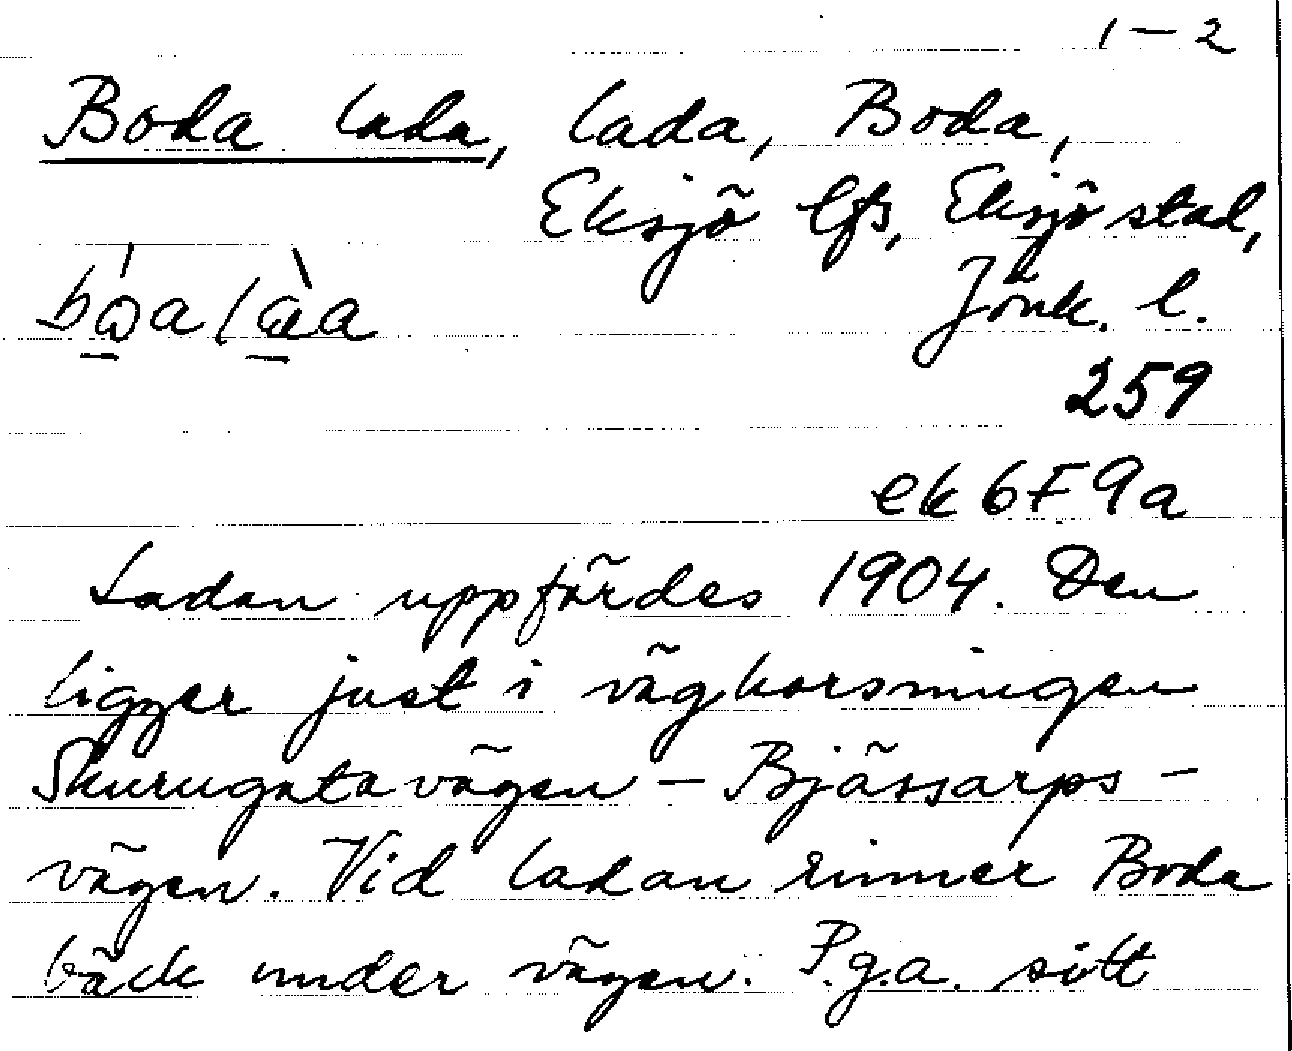 1–2
Boda lada, lada, Boda,
Eksjö lfs, Eksjö stad,
Jönk. l.
259
ek 6F 9a
Ladan uppfördes 1904. Den
ligger just i vägkorsningen
Skurugatavägen – Bjässarps-
vägen. Vid ladan rinner Boda
bäck under vägen. P.g.a. sitt